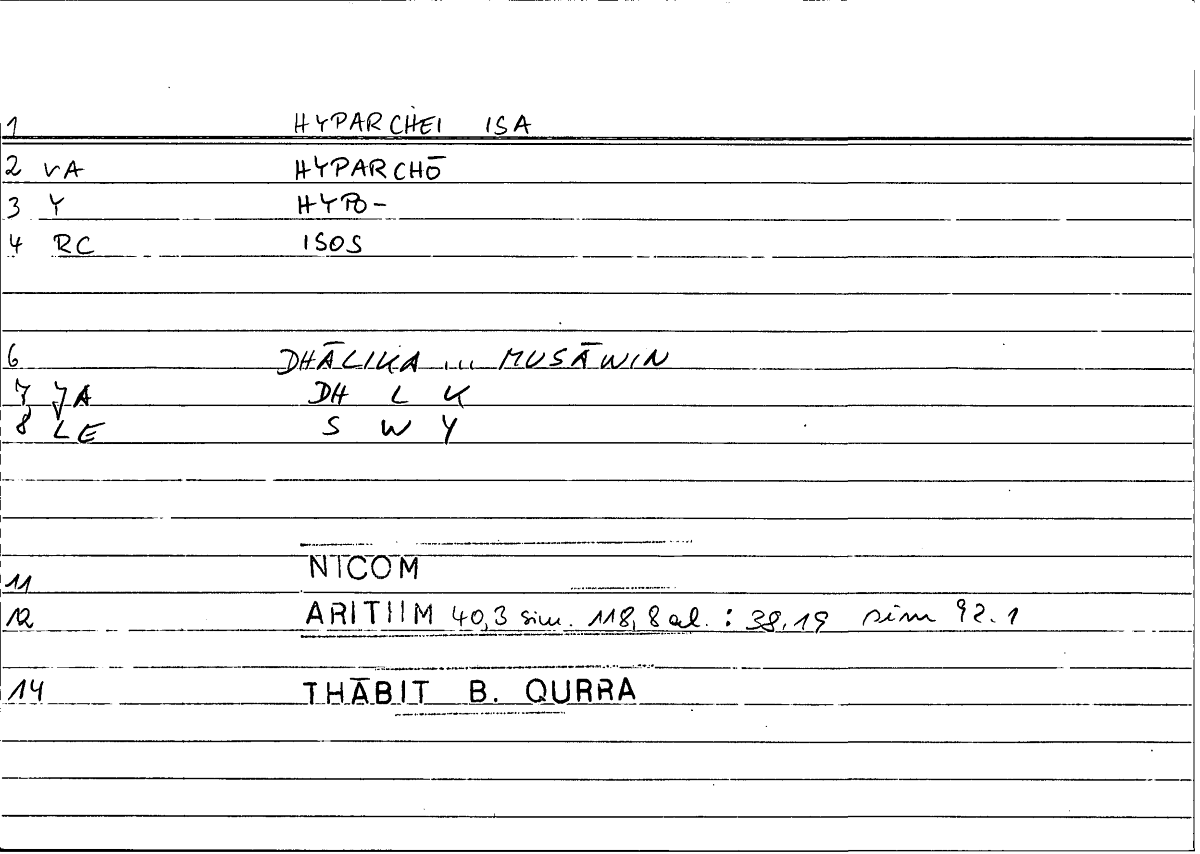 1 HYPARCHEI ISA
2 VA HYPARCHŌ
3 Y HYPO-
4 RC ISOS
6 DHĀLIKA ... MUSĀWIN
7 JA DH L K
8 LE S W Y
11 NICOM
12 ARITIIM 40,3 sim. 118,8 al. : 38.19 sim 92.1
14 THĀBIT B. QURRA